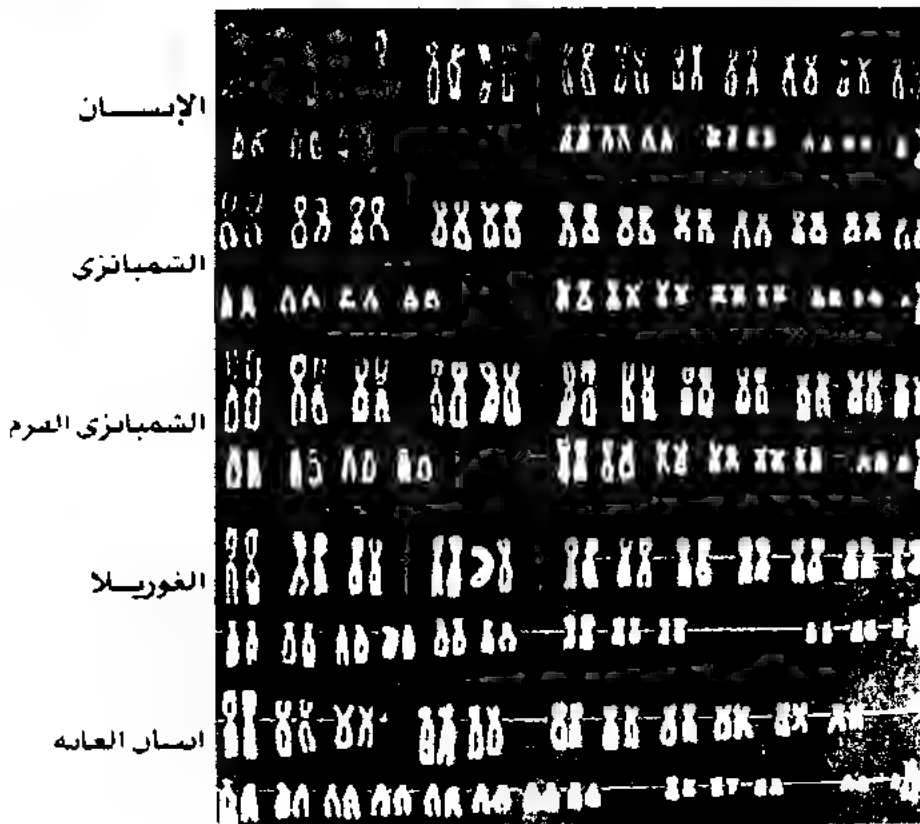 الإنسـان
الشمبانزى
الشمبانزى القزم
الغوريـلا
انسان الغابه